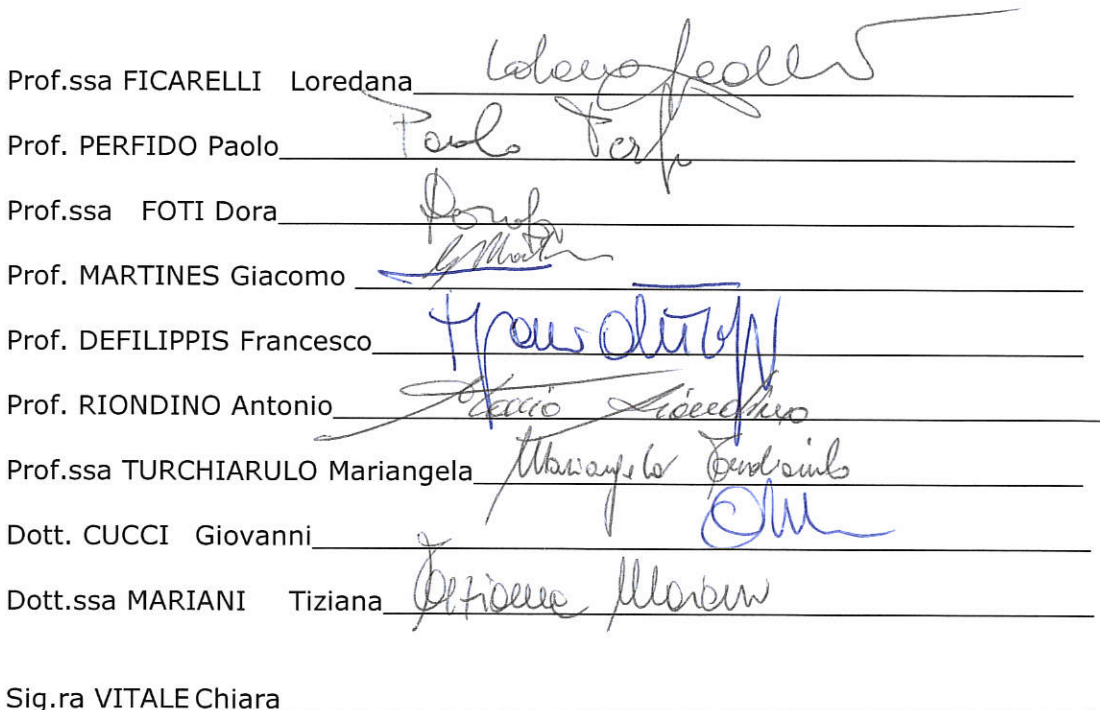 Prof.ssa FICARELLI Loredana
Prof. PERFIDO Paolo Paolo
Prof.ssa FOTI Dora
Prof. MARTINES Giacomo
Prof. DEFILIPPIS Francesco
Prof. RIONDINO Antonio
Prof.ssa TURCHIARULO Mariangela Mariangela
Dott. CUCCI Giovanni
Dott.ssa MARIANI Tiziana Tiziana Mariani
Sig.ra VITALE Chiara